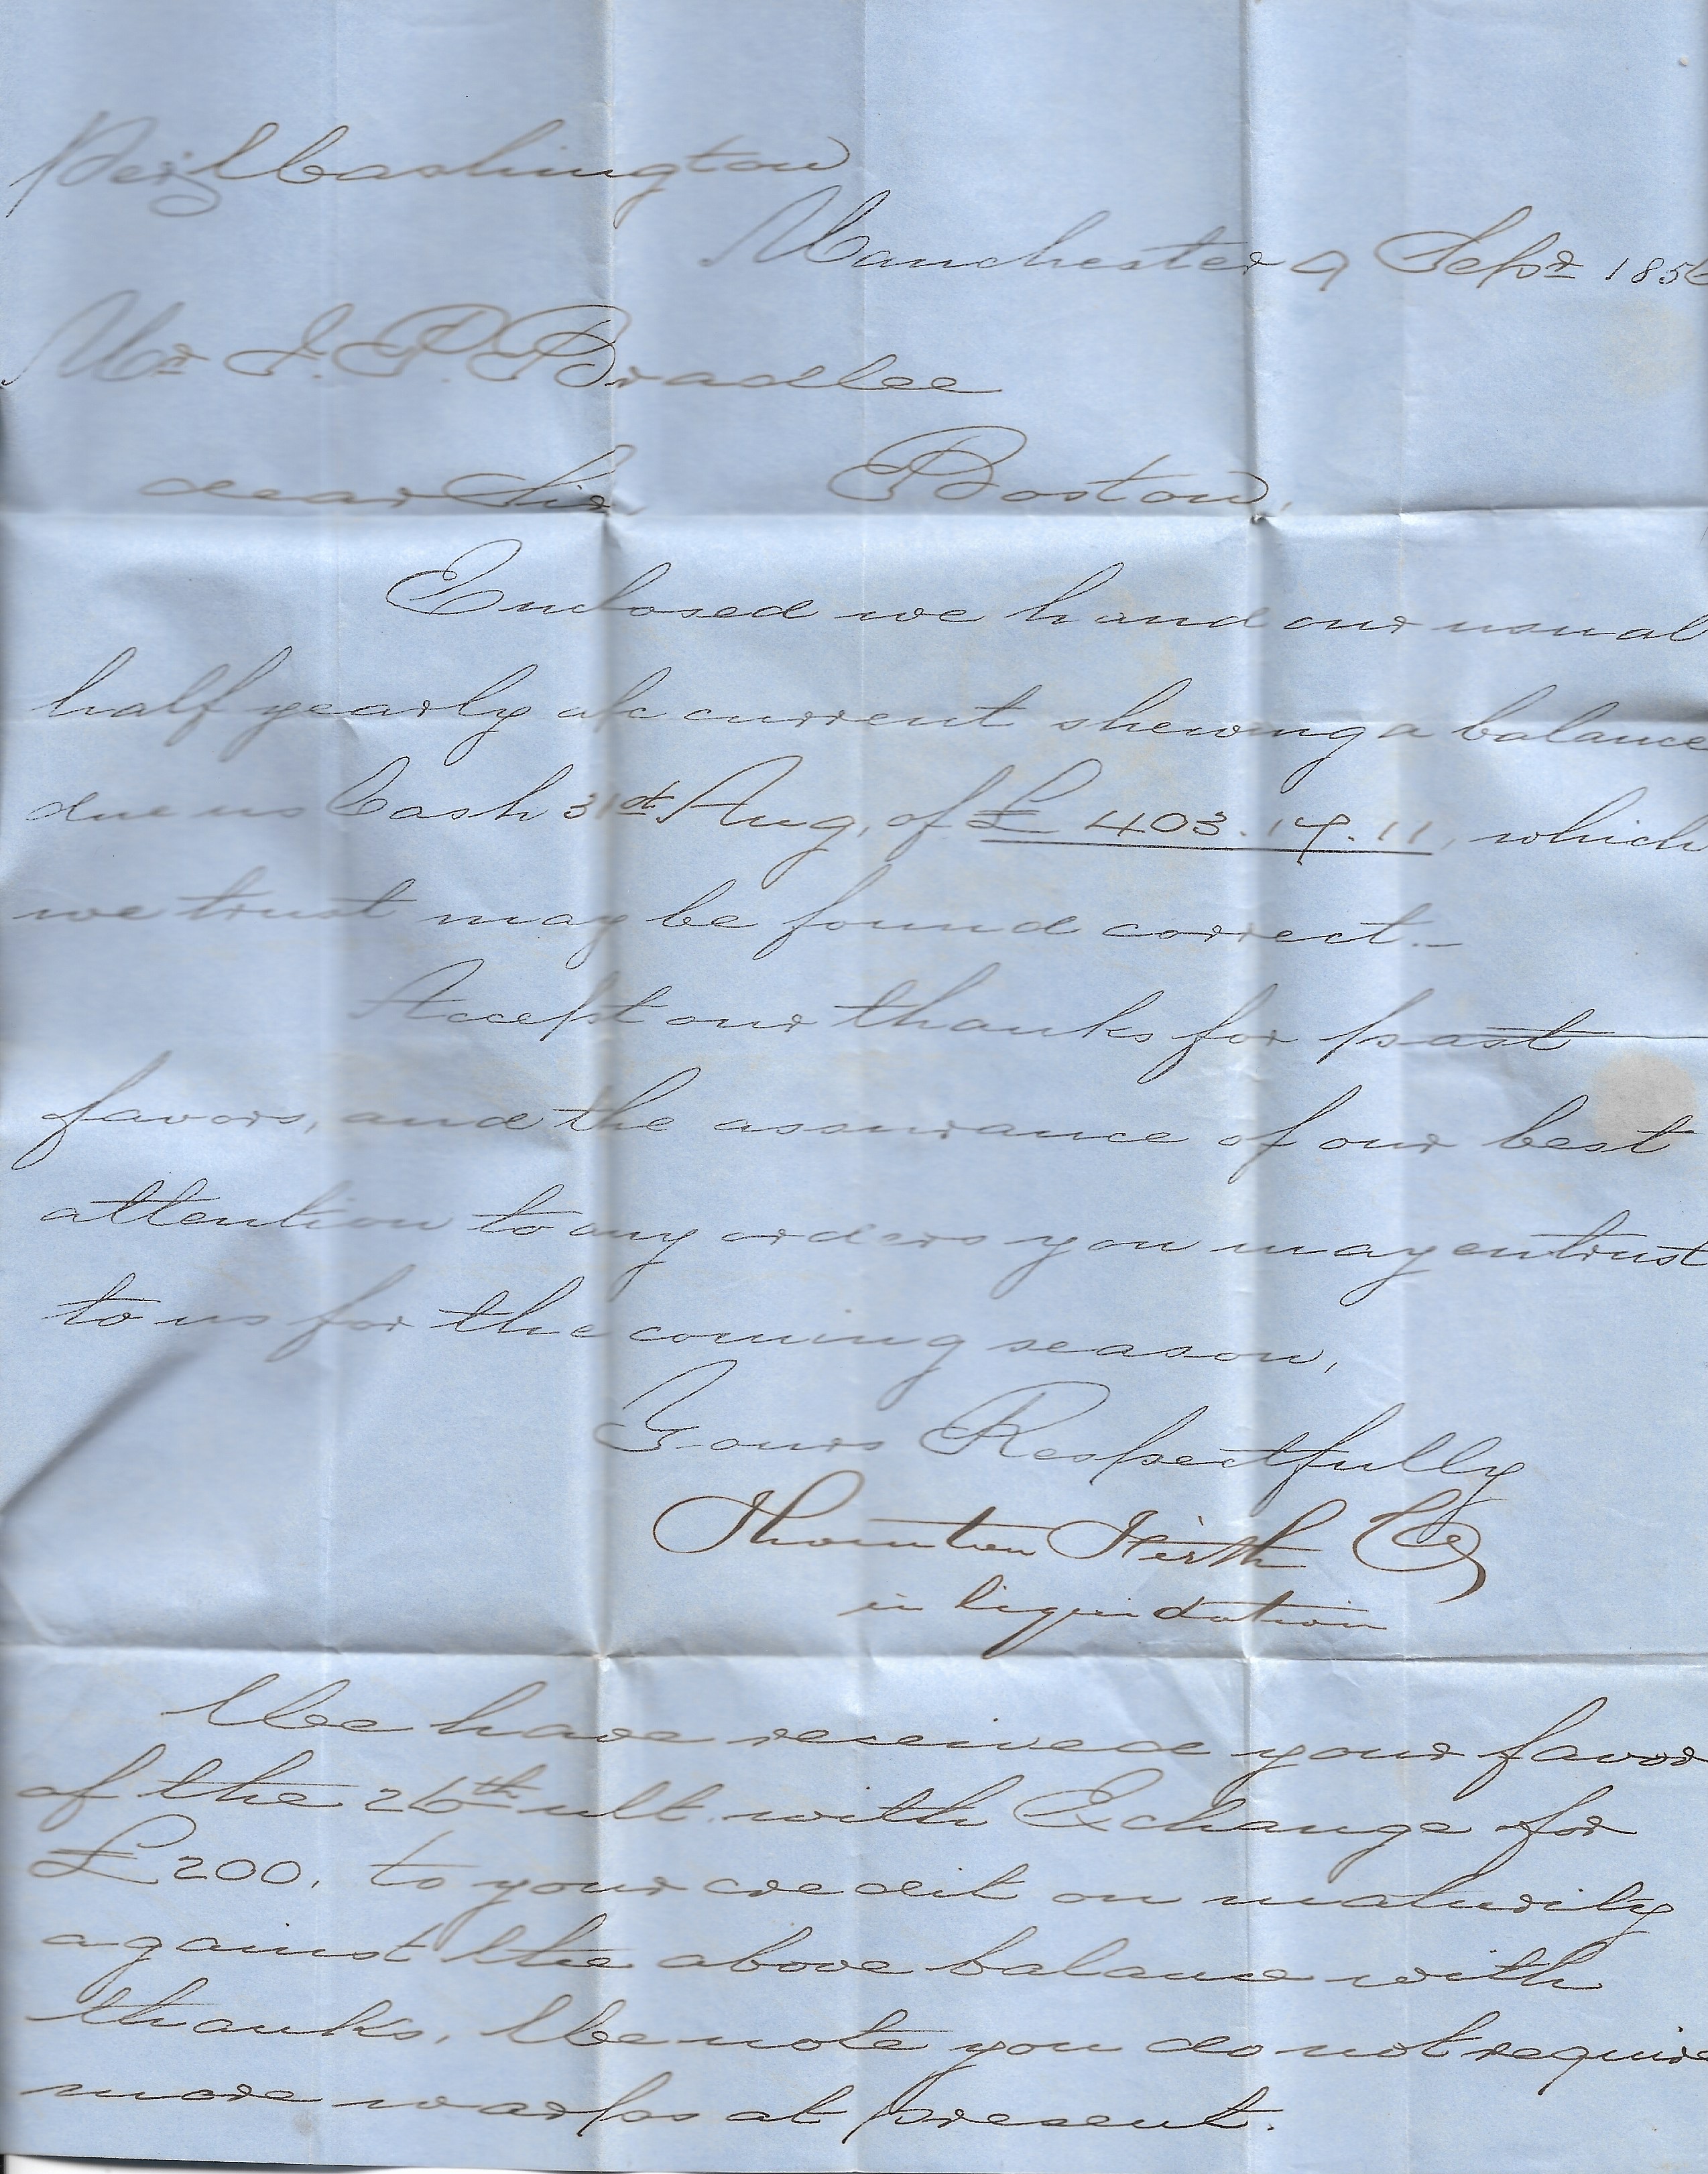 Per Washington
Manchester 9 Sepr 1856
Mr J. P. Bradlee
dear Sir Boston,
Enclosed we hand our usual
half yearly a/c current shewing a balance
due us Cash 31st Aug, of £ 403.14.11, which
we trust may be found correct.-
Accept our thanks for past
favors, and the assurance of our best
attention to any orders you may entrust
to us for the coming season,
Yours Respectfully
Thornton Firth & Co
in liquidation
We have received your favor
of the 26th ult. with Exchange for
£200, to your credit on maturity
against the above balance with
thanks. We note you do not require
more warps at present.